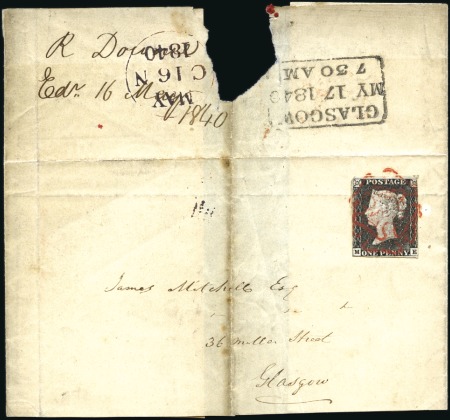 R
Edr. 16 May
1840
MAY
C 16 N
1840
GLASGOW
MY 17 1840
7 30 AM
POSTAGE
M ONE PENNY E
James Mitchell Esq
36 Miller Street
Glasgow